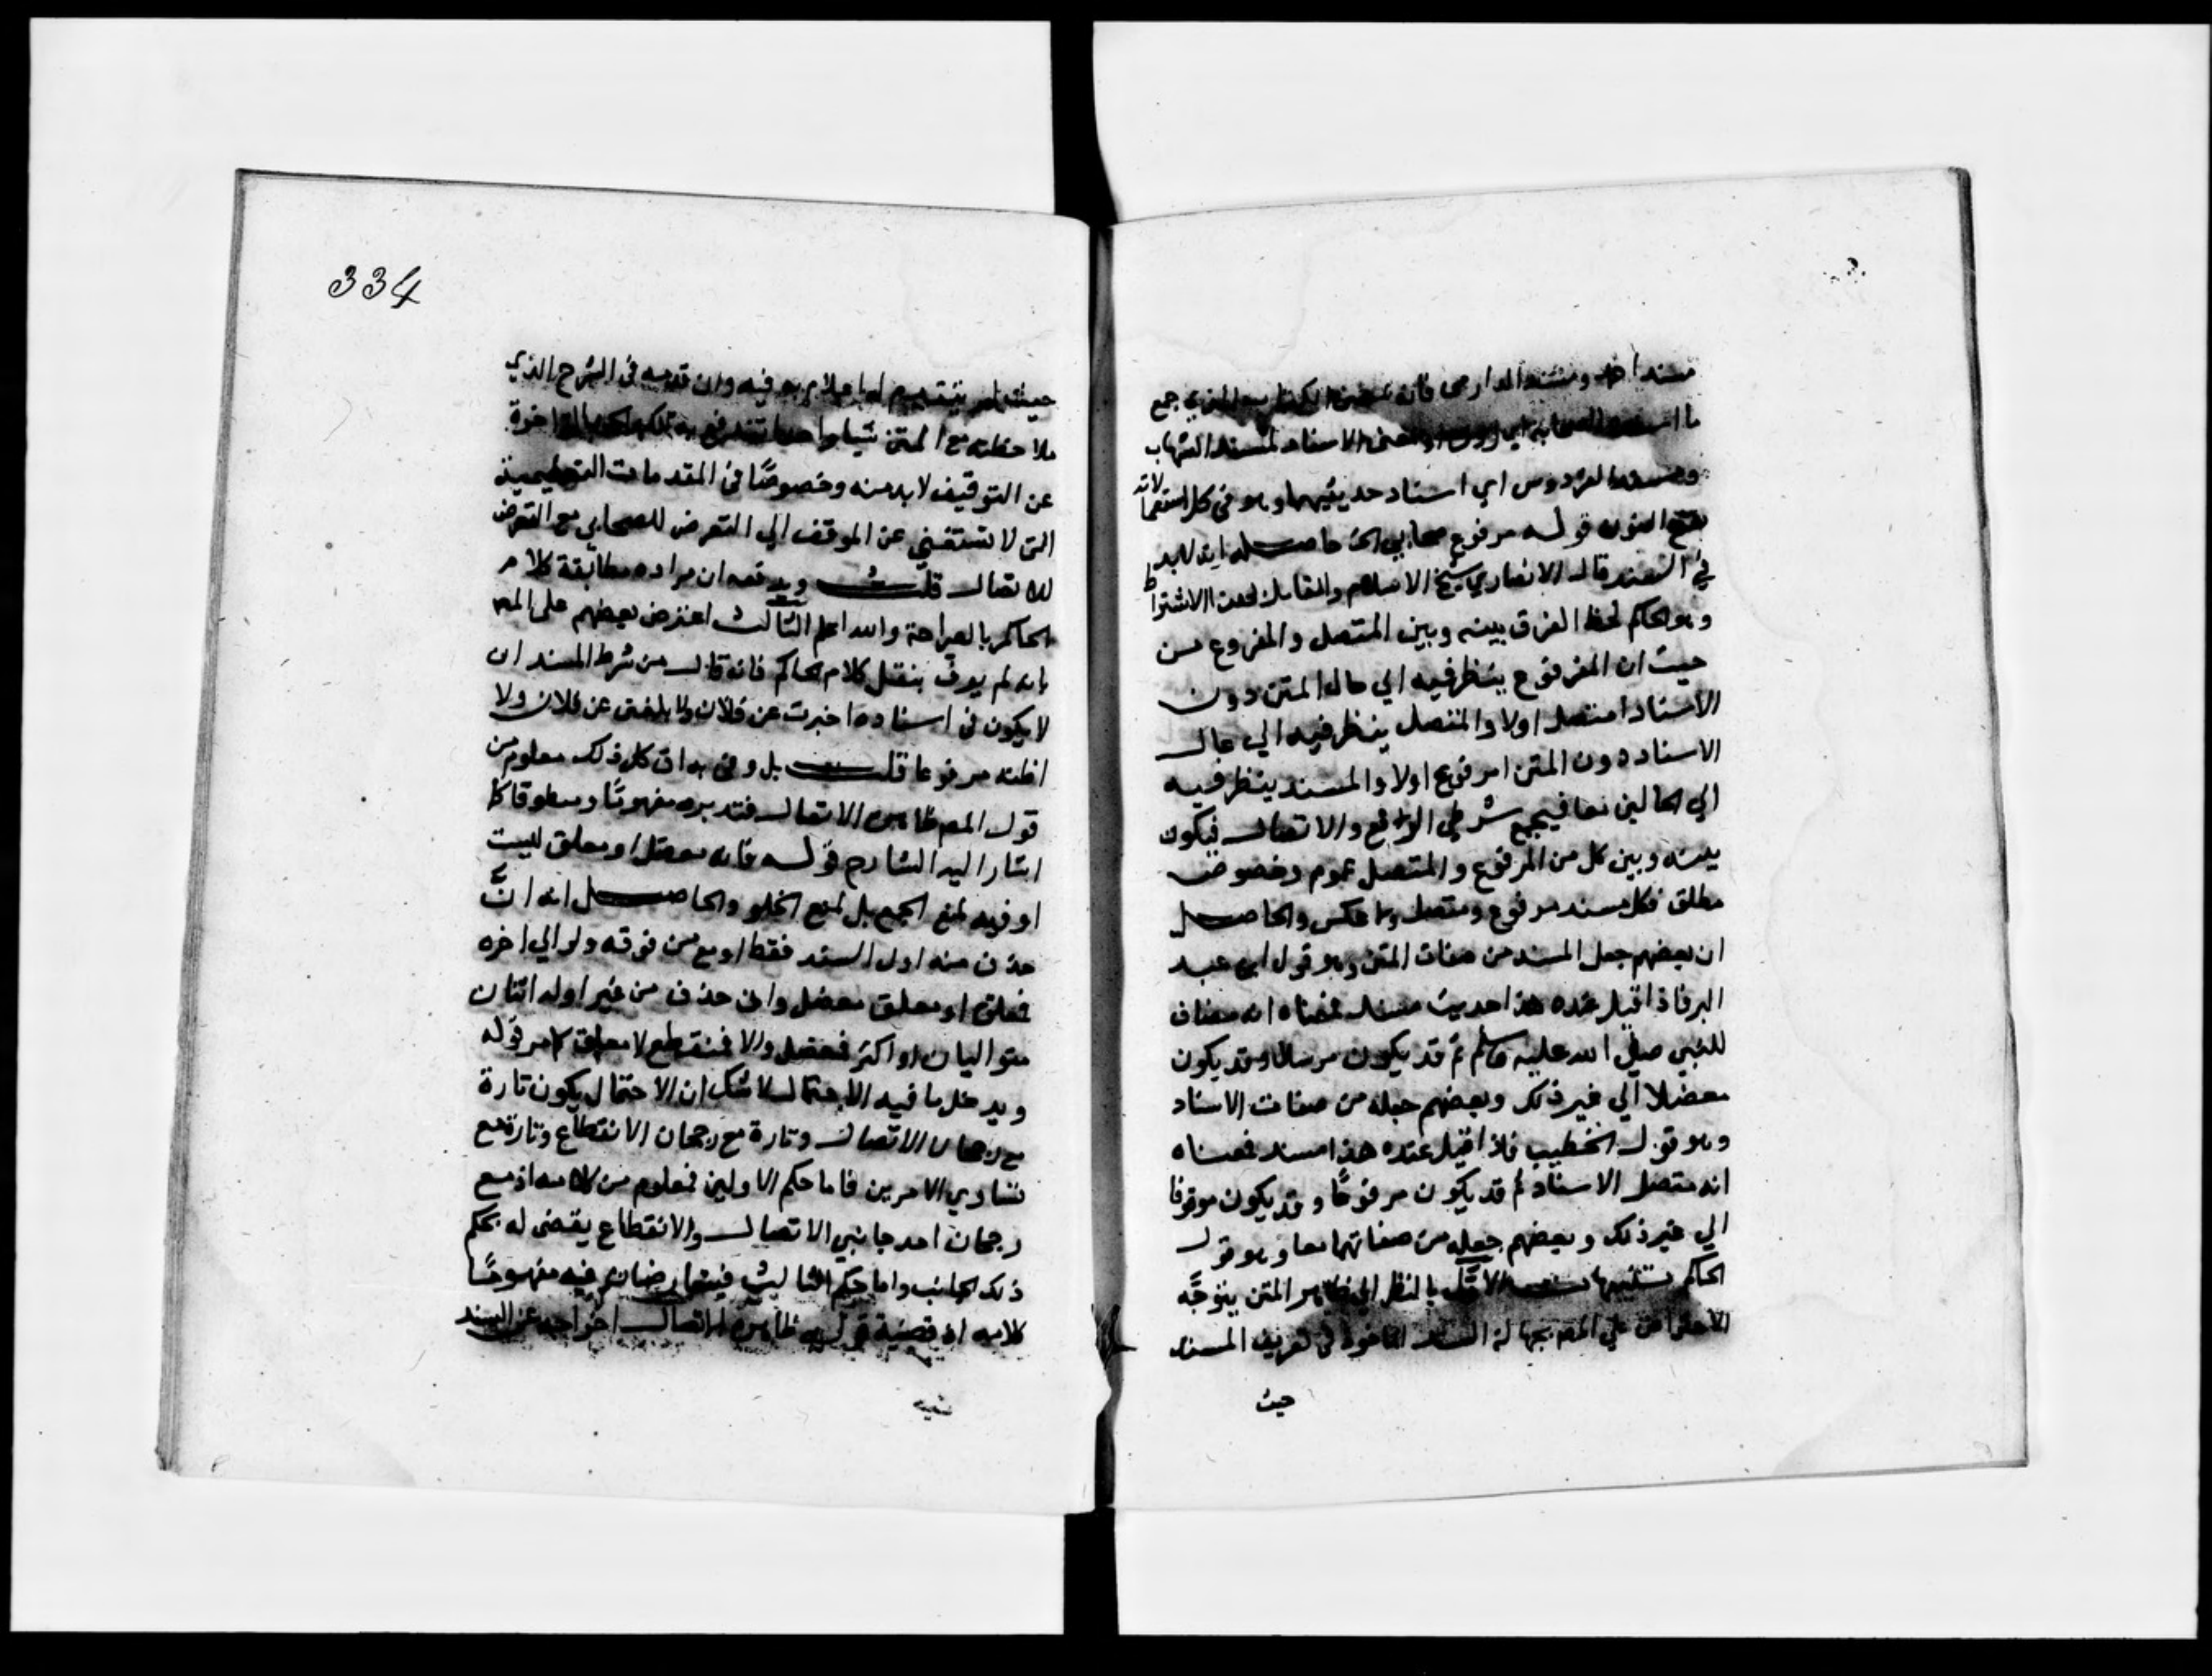 مسند احمد ومسند الدارمي فانه الكتاب الذي جمع
ما الصحابة اي الاسناد لمسند الشهاب
ومسند الفردوس اي اسناد حديثيهما وهو في كل استعمالاته
بفتح النون قوله مرفوع صحابي الخ حاصله انه لابد
في المسند قال الانصاري شيخ الاسلام والقايل لهذا الاشتراط
وهو الحاكم لحظ الفرق بينه وبين المتصل والمرفوع من
حيث ان المرفوع ينظر فيه الي حال المتن دون
الاسناد امتصل اولا والمتصل ينظر فيه الي حال
الاسناد دون المتن امرفوع اولا والمسند ينظر فيه
الي الحالين معا فيجمع شرطي الرفع والاتصال فيكون
بينه وبين كل من المرفوع والمتصل عموم وخصوص
مطلق فكل مسند مرفوع ومتصل ولا عكس والحاصل
ان بعضهم جعل المسند من صفات المتن وهو قول ابن عبد
البر فاذا قيل عنده هذا حديث مسند فمعناه انه مضاف
للنبي صلي الله عليه وسلم ثم قد يكون مرسلا وقد يكون
معضلا الي غير ذلك وبعضهم جعله من صفات الاسناد
وهو قول الخطيب فاذا قيل عنده هذا مسند فمعناه
انه متصل الاسناد ثم قد يكون مرفوعًا وقد يكون موقوفا
الي غير ذلك وبعضهم جعله من صفاتهما معا وهو قول
الحاكم تنبيهات الاول بالنظر الي ظاهر المتن يتوجّه
الاعتراض علي المص بجهالة السند الماخوذ في تعريف المسند
حيث
334
حيث لم يتقدم له اعلام به فيه وان قدمه في الشرح الذي
ملاحظته مع المتن شيا واحدا تندفع به تلك المواخذة
عن التوقيف لابد منه وخصوصًا في المقدمات التعليمية
التي لا تستغني عن الموقف الي التعرض للصحابي مع التعرض
للاتصال قلت ويدفعه ان مراده مطابقة كلام
الحاكم بالصراحة والله اعلم الثالث اعترض بعضهم على المص
بانه لم يوف بنقل كلام الحاكم فانه قال من شرط المسند ان
لا يكون في اسناده اخبرت عن فلان ولا بلغني عن فلان ولا
اظنه مرفوعا قلت بل وفي به ان كل ذلك معلوم من
قول المص ظاهره الاتصال فتدبره مفهومًا ومنطوقا كما
اشار اليه الشارح قوله فانه معضل او معلق ليست
او فيه لمنع الجمع بل لمنع الخلو والحاصل انه انّ
حذف منه اول السند فقط او مع من فوقه ولو الي اخره
فمعلق او معلق معضل وان حذف من غير اوله اثنان
متواليان او اكثر فمعضل والا فمنقطع لا معلق كما مر قوله
ويدخل ما فيه الاحتمال لا شك ان الاحتمال يكون تارة
مع رجحان الاتصال وتارة مع رجحان الانقطاع وتارة مع
تساوي الامرين فاما حكم الاولين فمعلوم من كلامه اذ مع
رجحان احد جانبي الاتصال والانقطاع يقضى له بحكم
ذلك الجانب واما حكم الثالث فيتعارضان فيه مفهومًا
كلامه اذ قضية قوله ظاهره الاتصال اخراجه عن المسند